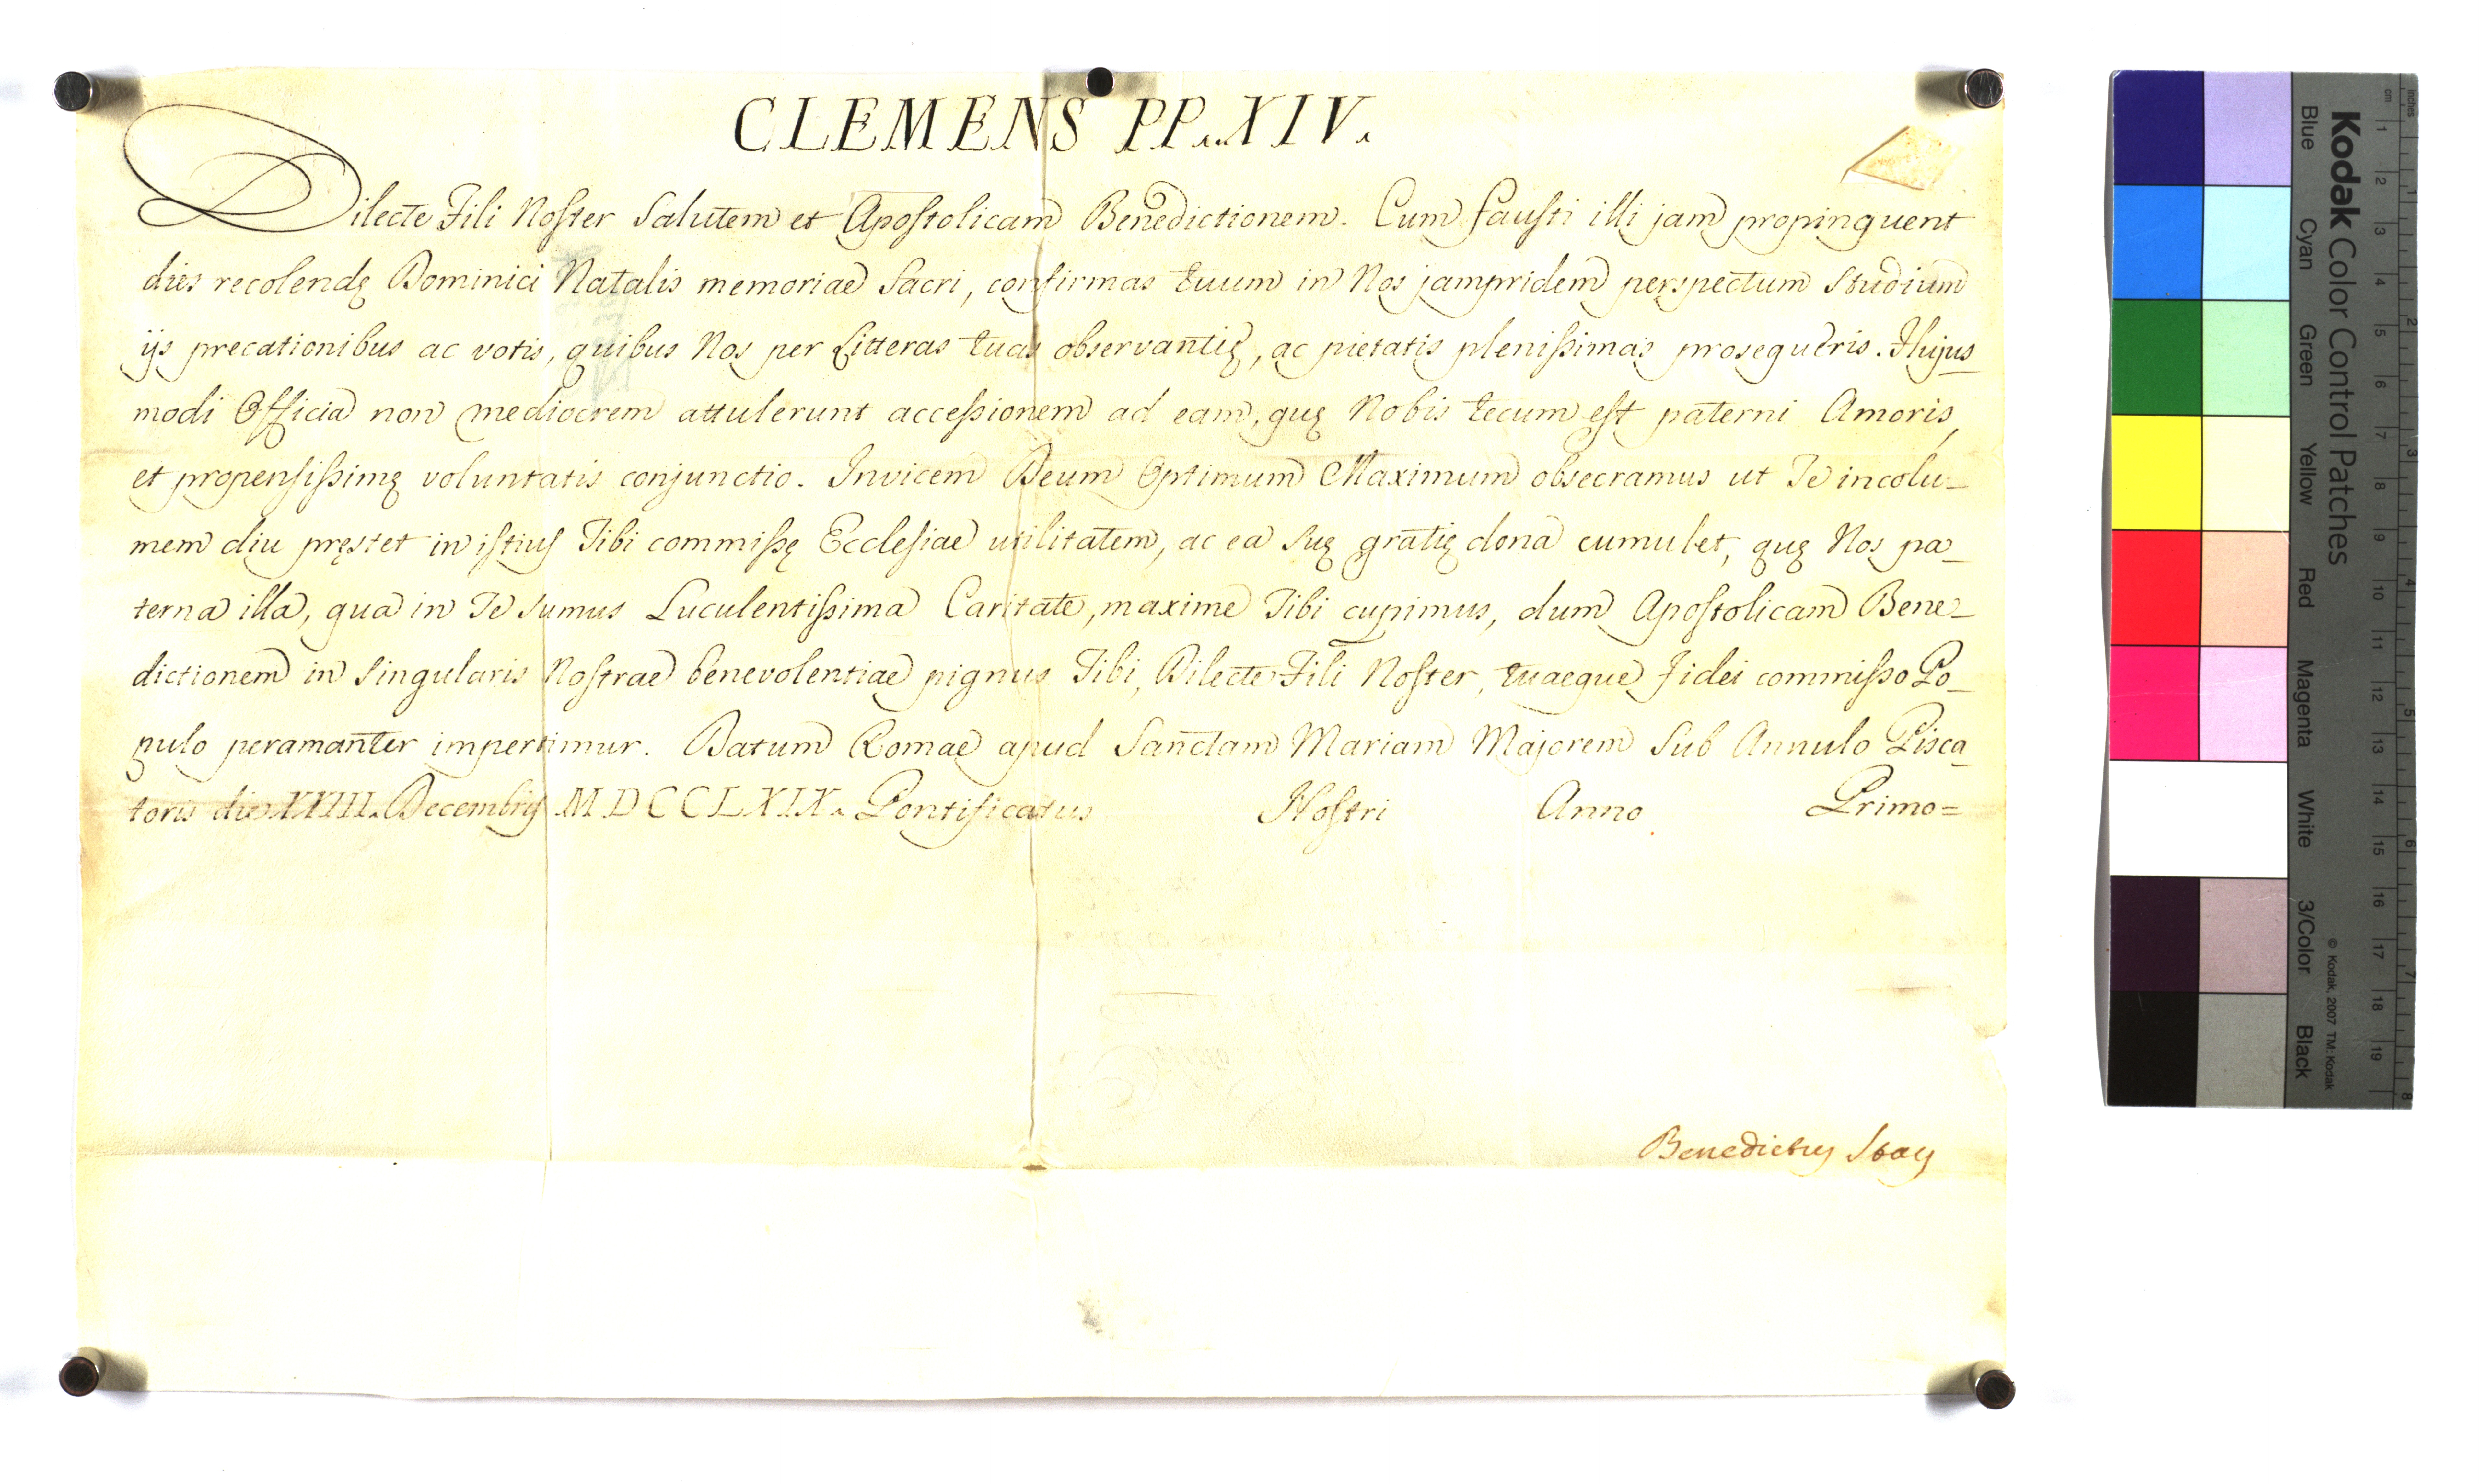 CLEMENS PP. XIV.
Dilecte Fili Noster Salutem et Apostolicam Benedictionem. Cum fausti illi jam propinquent
dies recolendę Dominici Natalis memoriae Sacri, confirmas tuum in Nos jampridem perspectum studium
ijs precationibus ac votis, quibus Nos per Litteras tuas observantię, ac pietatis plenissimas prosequeris. Hujus_
modi Officia non mediocrem attulerunt accessionem ad eam, quę Nobis tecum est paterni Amoris,
et propensissimę voluntatis conjunctio. Invicem Deum Optimum Maximum obsecramus ut Te incolu_
mem diu pręstet in istius Tibi commissę Ecclesiae utilitatem, ac ea suę gratię dona cumulet, quę Nos pa_
terna illa, qua in Te sumus Luculentissima Caritate, maxime Tibi cupimus, dum Apostolicam Bene_
dictionem in singularis Nostrae benevolentiae pignus Tibi, Dilecte Fili Noster, tuaeque fidei commisso Po_
pulo peramanter impertimur. Datum Romae apud Sanctam Mariam Majorem Sub Annulo Pisca_
toris die XXIII. Decembris MDCCLXIX. Pontificatus Nostri Anno Primo=
Benedictus Stay
Kodak Color Control Patches
Blue Cyan Green Yellow Red Magenta White 3/Color Black
© Kodak, 2007 TM: Kodak
cm 1 2 3 4 5 6 7 8 9 10 11 12 13 14 15 16 17 18 19
inches 1 2 3 4 5 6 7 8